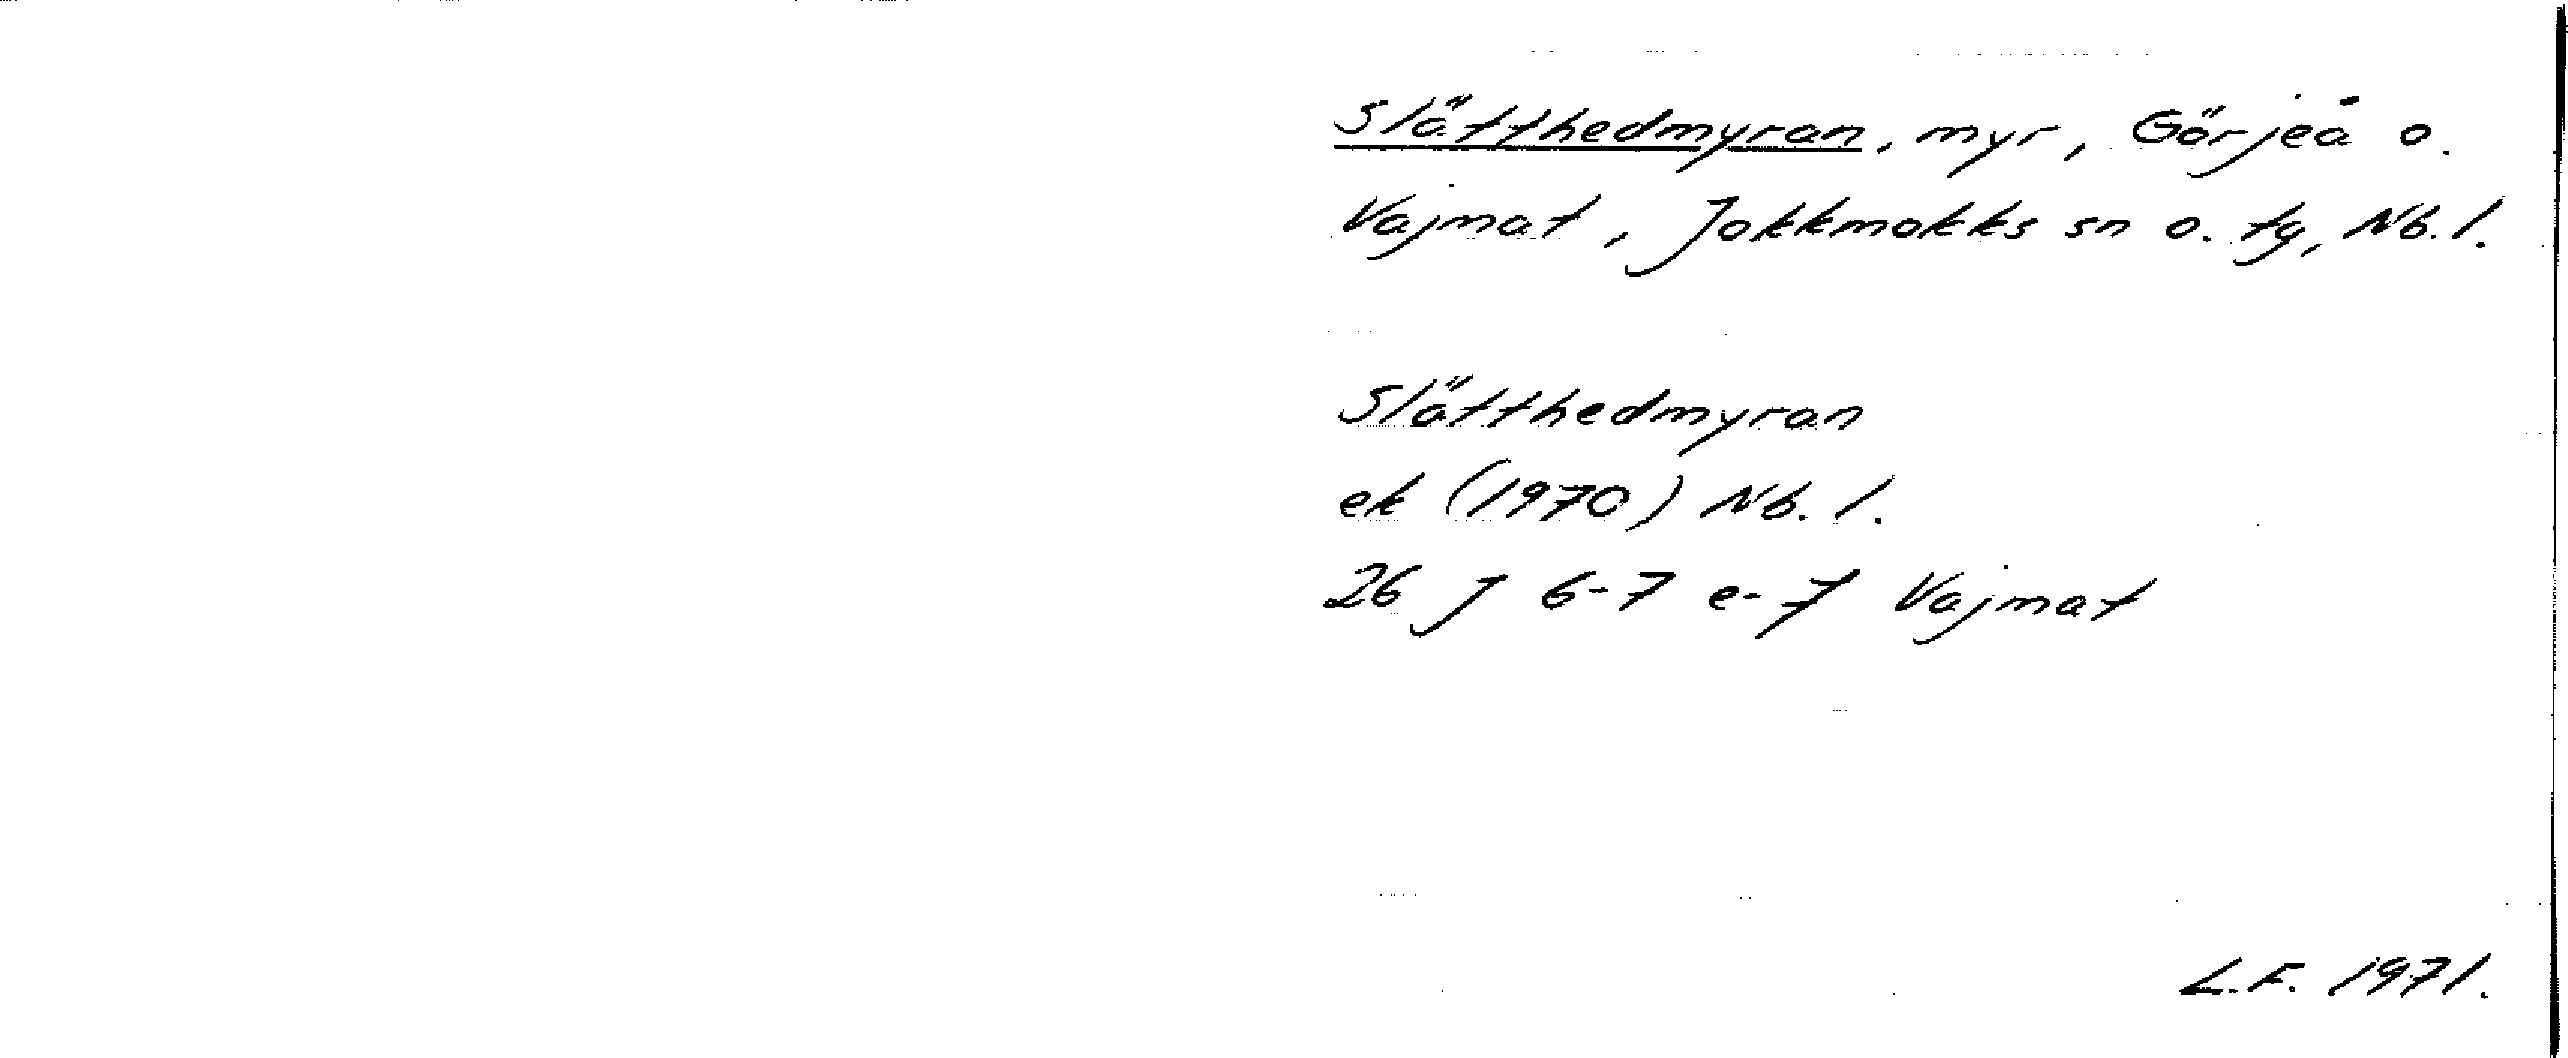 Slätthedmyran, myr, Görjeå o.
Vajmat, Jokkmokks sn o. tg, Nb. l.
Slätthedmyran
ek (1970) Nb. l.
26 J 6-7 e-f Vajmat
L.F. 1971.